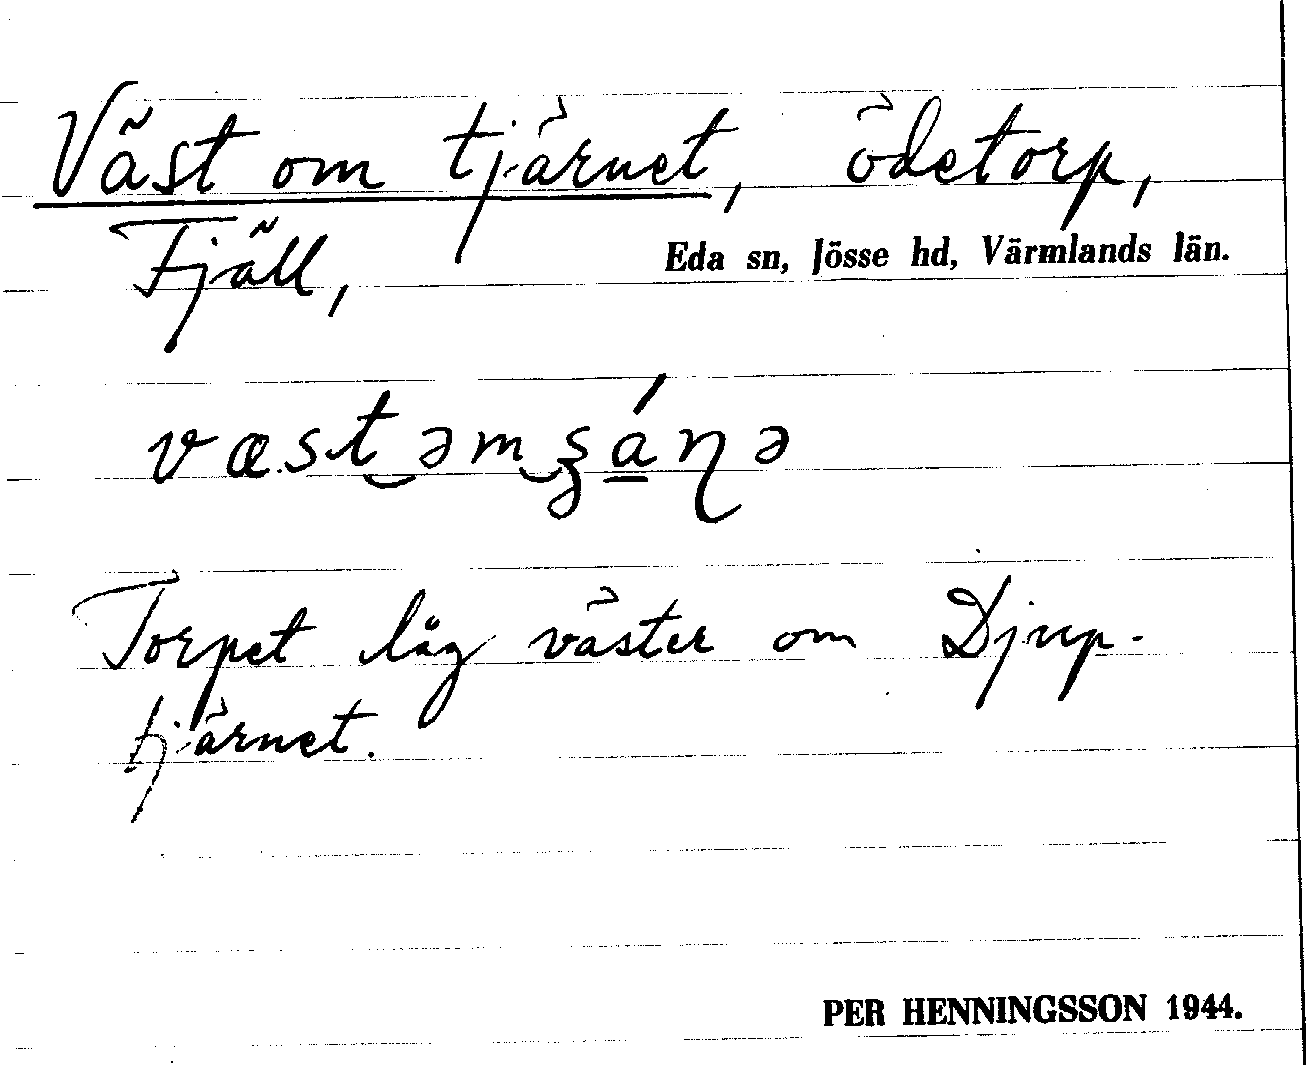 Väst om tjärnet, ödetorp,
Fjäll,
Eda sn, Jösse hd, Värmlands län.
væst‿əm‿ʂá̲ɳə
Torpet låg väster om Djup-
tjärnet.
PER HENNINGSSON 1944.